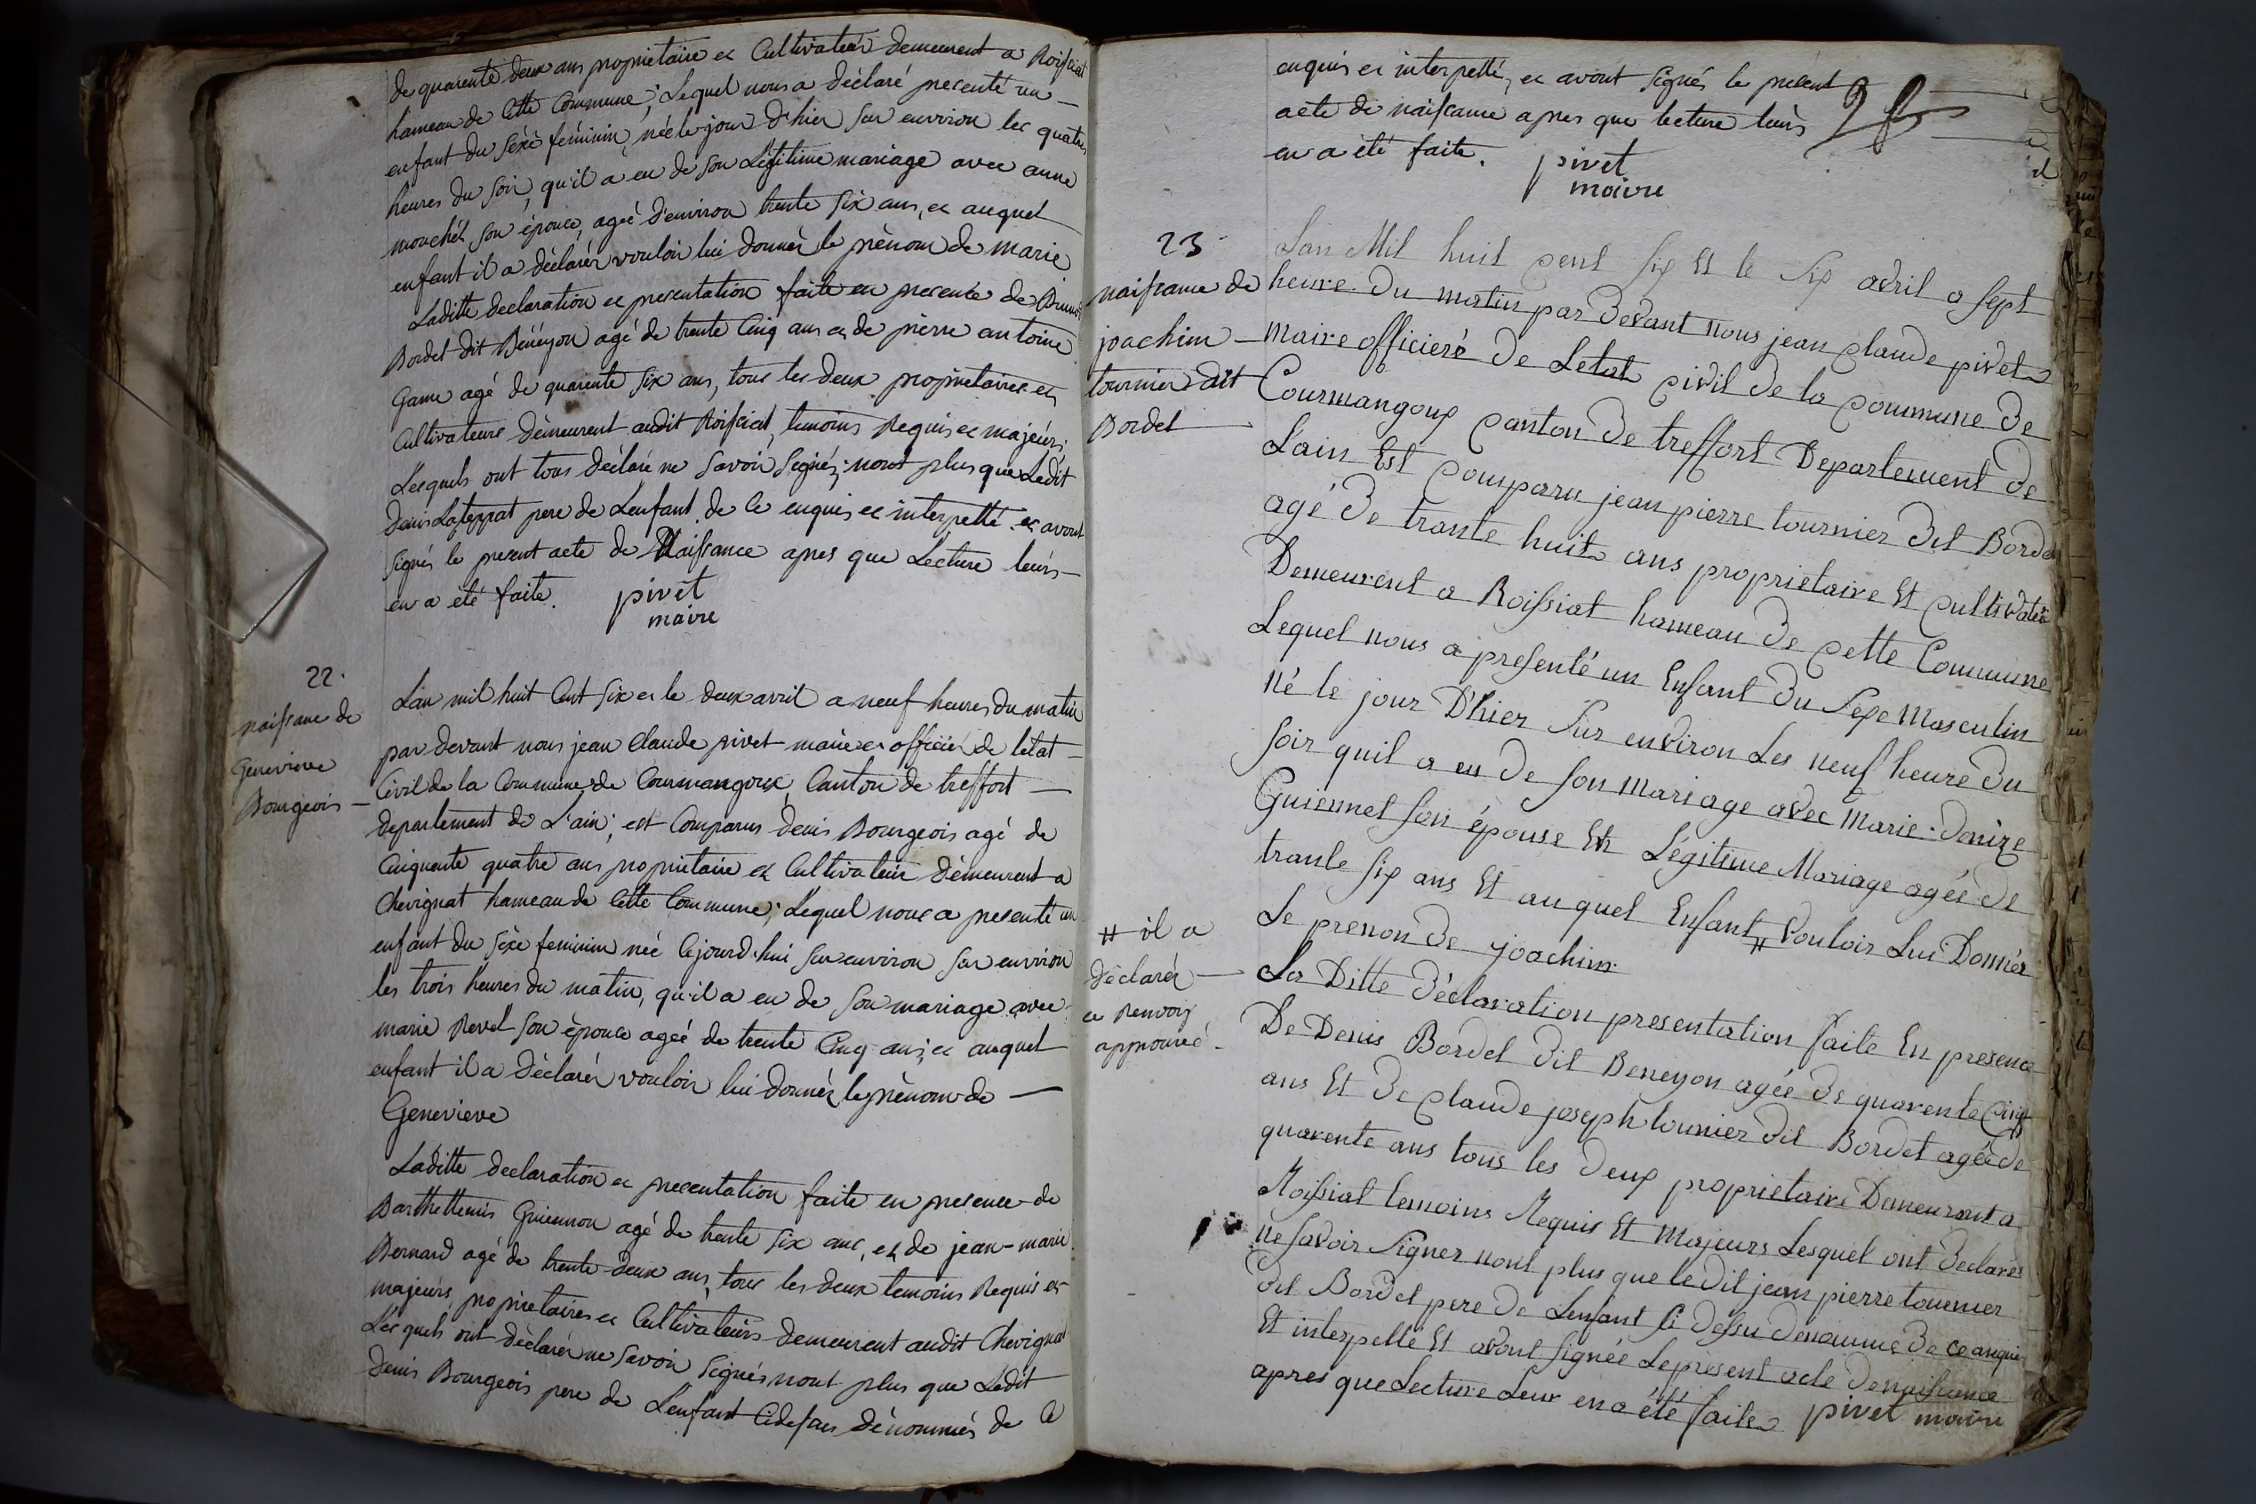 de quarente deux ans proprietaire et Cultivateur demeurent a Roissiat
hameau de Cette Commune; Lequel nous a déclaré presenté un
enfant du séxe féminin, née le jour d'hier sur environ les quatre
heures du soir, qu'il a eu de son Légitime mariage avec anne
mouchét son épouse, ageé d'environ trente six ans, et auquel
enfant il a déclarér vouloir lui donnér le prènom de marie
Laditte declaration et presentation faite en presence de
Bordet dit Bénéyon agé de trente Cinq ans et de pierre antoine
Game agé de quarente six ans, tous les deux proprietaires et
Cultivateurs démeurent audit Roissiat, temoins Requis et majeurs;
Lesquels ont tous déclaré ne savoir signér; nont plus que Ledit
denis pere de Lenfant de Ce enquis et interpellé et avont
signés le present acte de Naissance apres que Lecture leurs
en a été faite. pivet
maire
22.
naissance de
Genevieve
Bourgeois
L'an mil huit Cent six et le deux avril a neuf heures du matin
par devant nous jean Claude pivet maire et officiér de letat
Civil de la Commune de Courmangoux, Canton de treffort
departement de L'ain; est Comparus denis Bourgeois agé de
Cinquente quatre ans, proprietaire et Cultivateur démeurent a
Chevignat hameau de Cette Commune; Lequel nous a presenté un
enfant du séxe feminin née Cejourd'hui sur environ sur environ
les trois heures du matin, qu'il a eu de son mariage avec
marie Revel son épouse ageé de trente Cinq ans; et auquel
enfant il a déclarér vouloir lui donnér le prènom de
Genevieve
Laditte declaration et presentation faite en presence de
Barthellemis Guiennon agé de trente six ans, et de jean-marie
Bernard agé de trente deux ans, tous les deux temoins Requis et
majeurs, proprietaires et Cultivateurs demeurent audit Chevignat
Lesquels ont déclarér ne savoir signés nont plus que Ledit
denis Bourgeois pere de L'enfant Cidessus dénommés de Ce
enquis et interpellé, et avont signés le present
acte de naissance apres que lecture leurs
en a été faite. pivet
maire
23
naissance de
joachim
tournier dit
Bordet
Lan Mil huit cent six Et le six avril a sept
heure du matin par devant nous jean claude pivet
maire officieré de Letat civil de la commune de
Courmangoux canton de treffort Departement de
Lain Est comparu jean pierre tournier dit Bordet
agé de trante huit ans proprietaire Et cultivateur
Demeurent a Roissiat hameau de cette Commune
Lequel nous a presenté un Enfant du Sexe Masculin
né le jour D'hier Sur environ Les neuf heure du
soir quil a eu de son mariage avec Marie denize
Guiennet son épouse Et Légitime Mariage agée de
trante six ans Et auquel Enfant # vouloir Lui Donnér
Le prenon de joachim
# il a
déclarér
ce Renvoy
approuvé
La Ditte déclaration presentation faite En presence
De Denis Bordet dit Beneyon agée de quarente Cinq
ans Et de claude joseph tournier dit Bordet agée de
quarente ans tous les deux proprietaire Demeurant a
Roissiat temoins Requis Et Majeurs Lesquel ont declarés
ne savoir Signer nont plus que le dit jean pierre tournier
dit Bordet pere de Lenfant si dessu denommé de ce anquis
Et interpellé Et avont signée Le present acte de naissance
apres que Lecture Leur en a été faite pivet maire